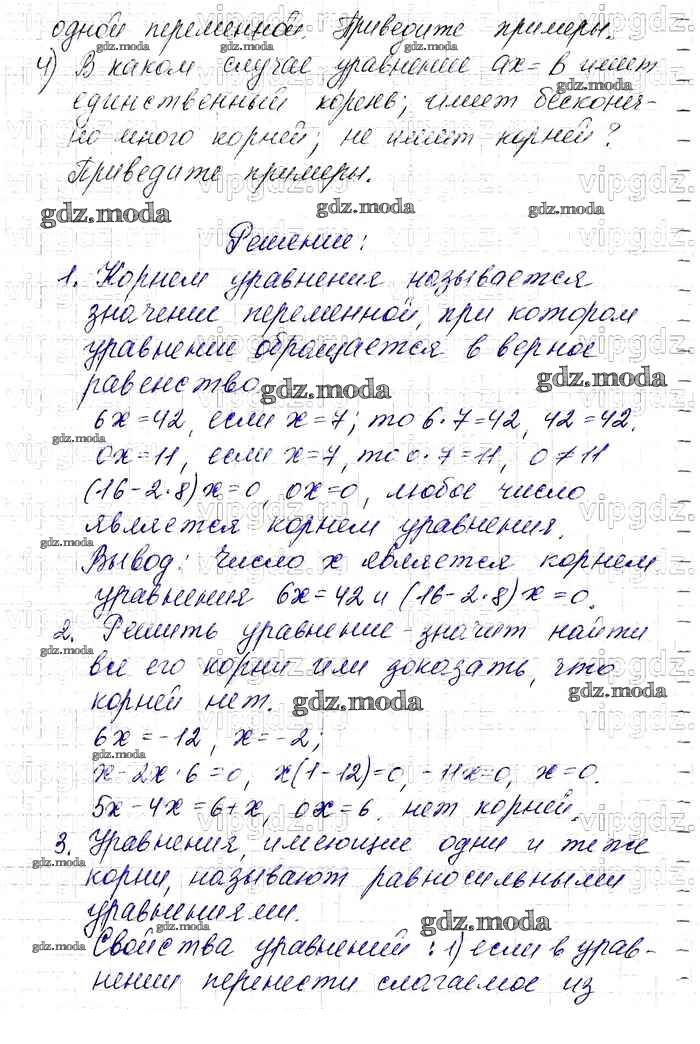 одной переменной. Приведите примеры.
4) В каком случае уравнение ax = b имеет
единственный корень; имеет бесконеч-
но много корней; не имеет корней?
Приведите примеры.
Решение:
1. Корнем уравнения называется
значение переменной, при котором
уравнение обращается в верное
равенство.
6x = 42, если x = 7; то 6·7 = 42, 42 = 42.
0x = 11, если x = 7, то 0·7 = 11, 0 ≠ 11
(16 - 2·8)x = 0, 0x = 0, любое число
является корнем уравнения.
Вывод: число x является корнем
уравнения 6x = 42 и (16 - 2·8)x = 0.
2. Решить уравнение - значит найти
все его корни или доказать, что
корней нет.
6x = -12, x = -2;
x - 2x·6 = 0, x(1 - 12) = 0, -11x = 0, x = 0.
5x - 4x = 6 + x, 0x = 6, нет корней.
3. Уравнения, имеющие одни и те же
корни, называют равносильными
уравнениями.
Свойства уравнений: 1) если в урав-
нении перенести слагаемое из
gdz.moda
vipgdz.ru